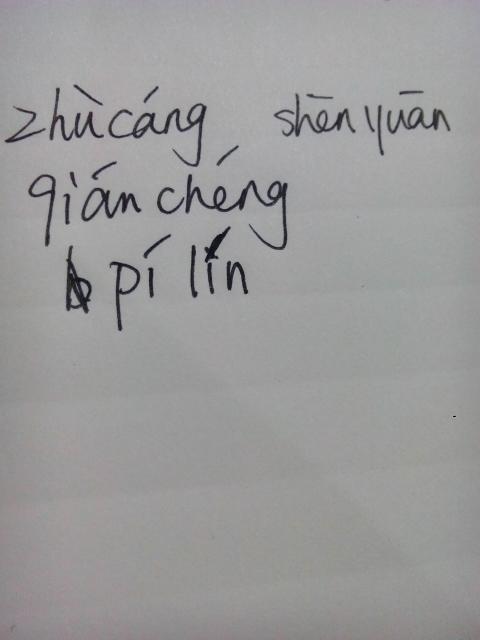 zhùcáng shēnyuān
qiánchéng
pí lín